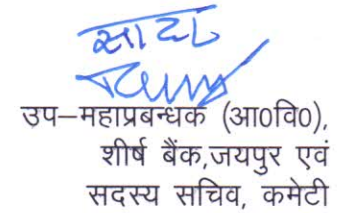 उप–महाप्रबन्धक (आ0वि0),
शीर्ष बैंक,जयपुर एवं
सदस्य सचिव, कमेटी